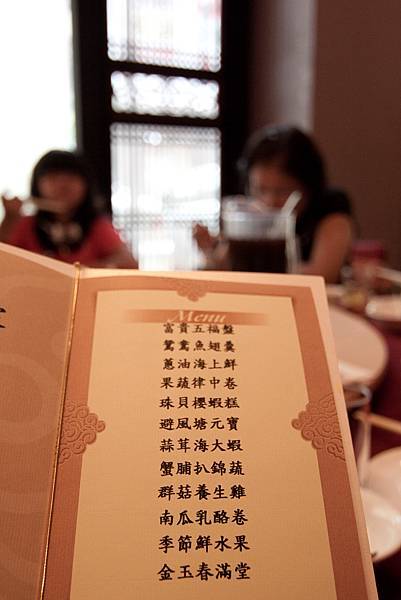 Menu
富貴五福盤
鴛鴦魚翅羹
蔥油海上鮮
果蔬律中卷
珠貝櫻蝦糕
避風塘元寶
蒜茸海大蝦
蟹脯扒錦蔬
群菇養生雞
南瓜乳酪卷
季節鮮水果
金玉春滿堂